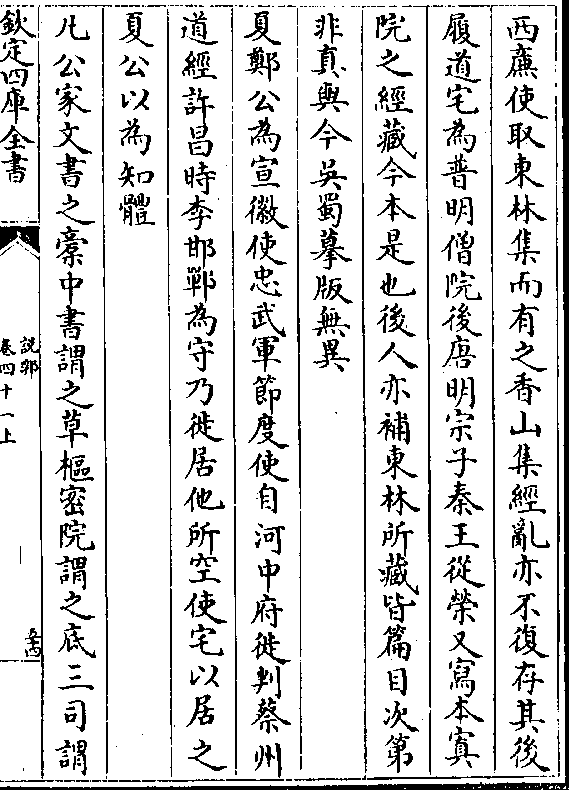 西㢘使取東林集而有之香山集經亂亦不復存其後
履道宅為普明僧院後唐明宗子秦王從榮又寫本寘
院之經藏今本是也後人亦補東林所藏皆篇目次第
非真與今吳蜀摹版無異
夏鄭公為宣徽使忠武軍節度使自河中府徙判蔡州
道經許昌時李邯鄲為守乃徙居他所空使宅以居之
夏公以為知體
凡公家文書之稾中書謂之草樞密院謂之底三司謂
欽定四庫全書
說郛
卷四十一上